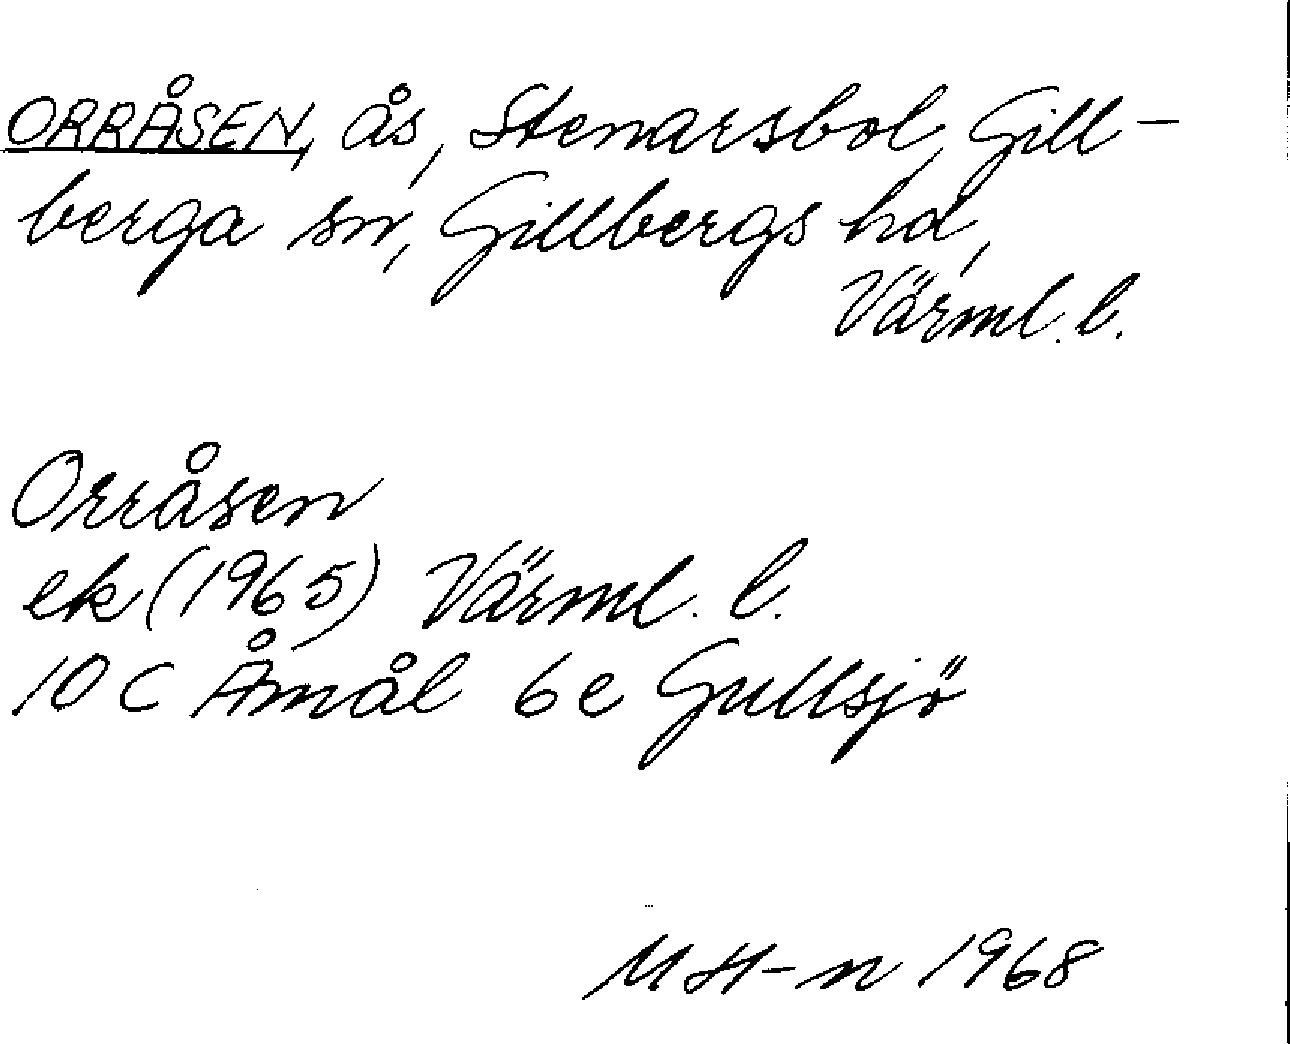 ORRÅSEN, ås, Stenarsbol, Gill-
berga sn, Gillbergs hd,
Värml. l.
Orråsen
ek (1965) Värml. l.
10 C Åmål 6e Gullsjö
MH-n 1968